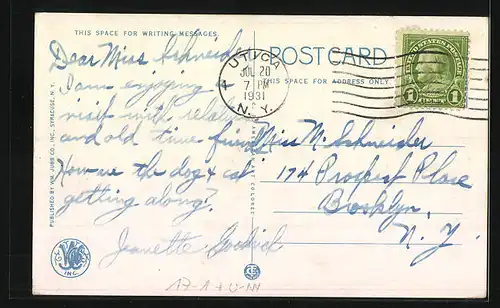 THIS SPACE FOR WRITING MESSAGES
POST CARD
THIS SPACE FOR ADDRESS ONLY
UTICA
JUL 20
7 PM
1931
N.Y.
1
1
Dear Miss Schneider
I am enjoying a
visit with relatives
and old time friends
How are the dog & cat
getting along?
Jeanette
Miss M. Schneider
174 Prospect Place
Brooklyn,
N. Y.
PUBLISHED BY WM. JUBB CO., INC., SYRACUSE, N. Y.
INC.